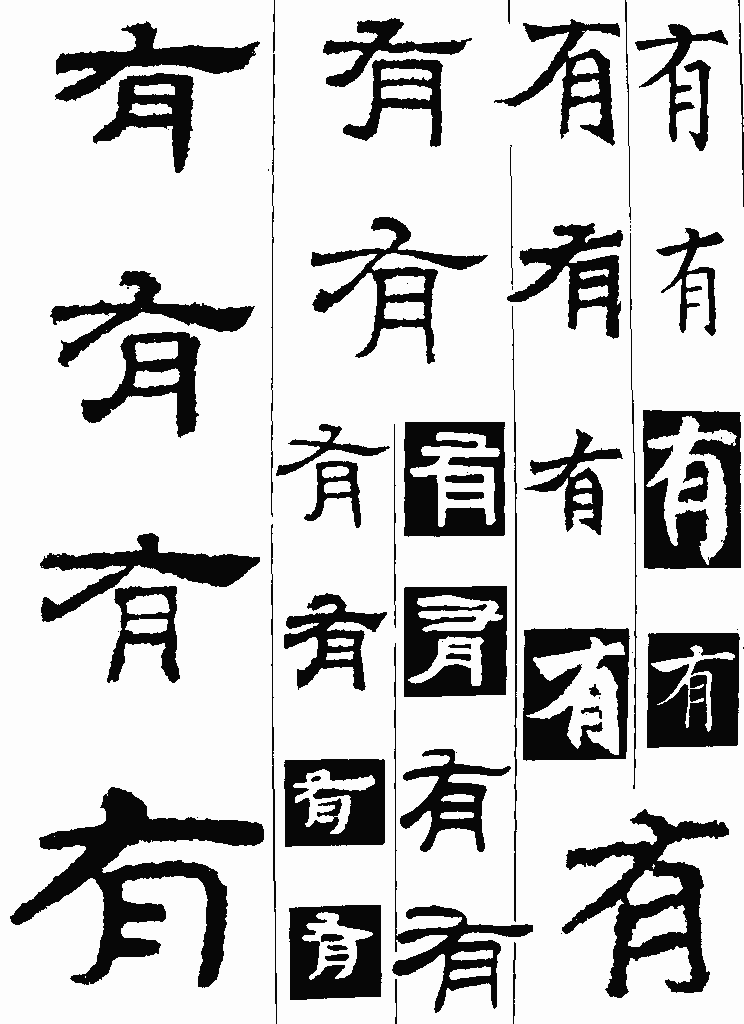 有有有有
有有有有
有
有有
有有有有
有有有有
有有有有